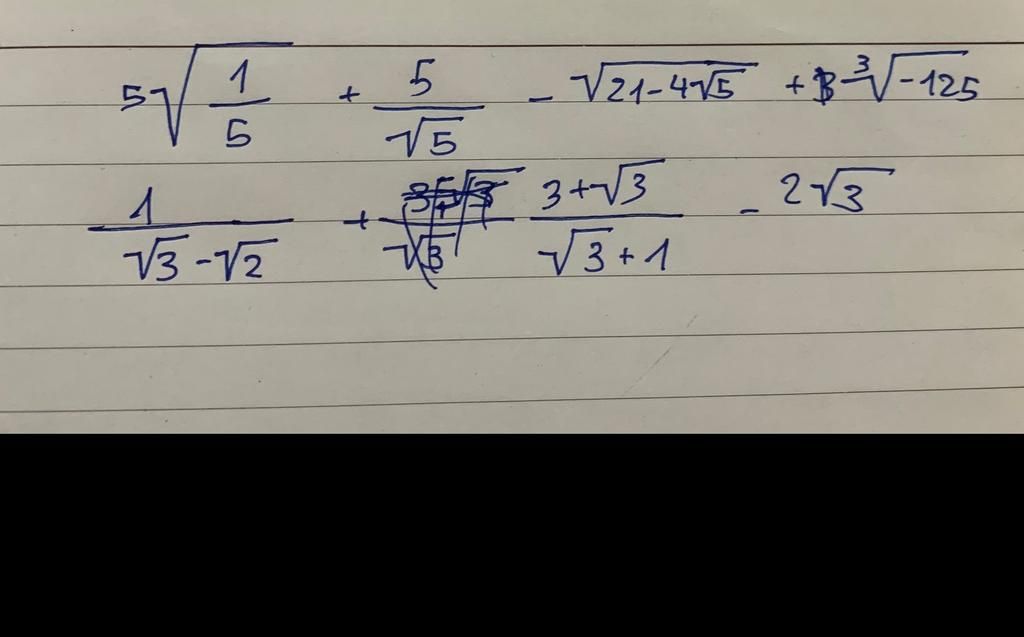 5√(1/5) + 5/√5 - √(21-4√5) + ³√(-125)
1/(√3-√2) + (3+√3)/(√3+1) - 2√3